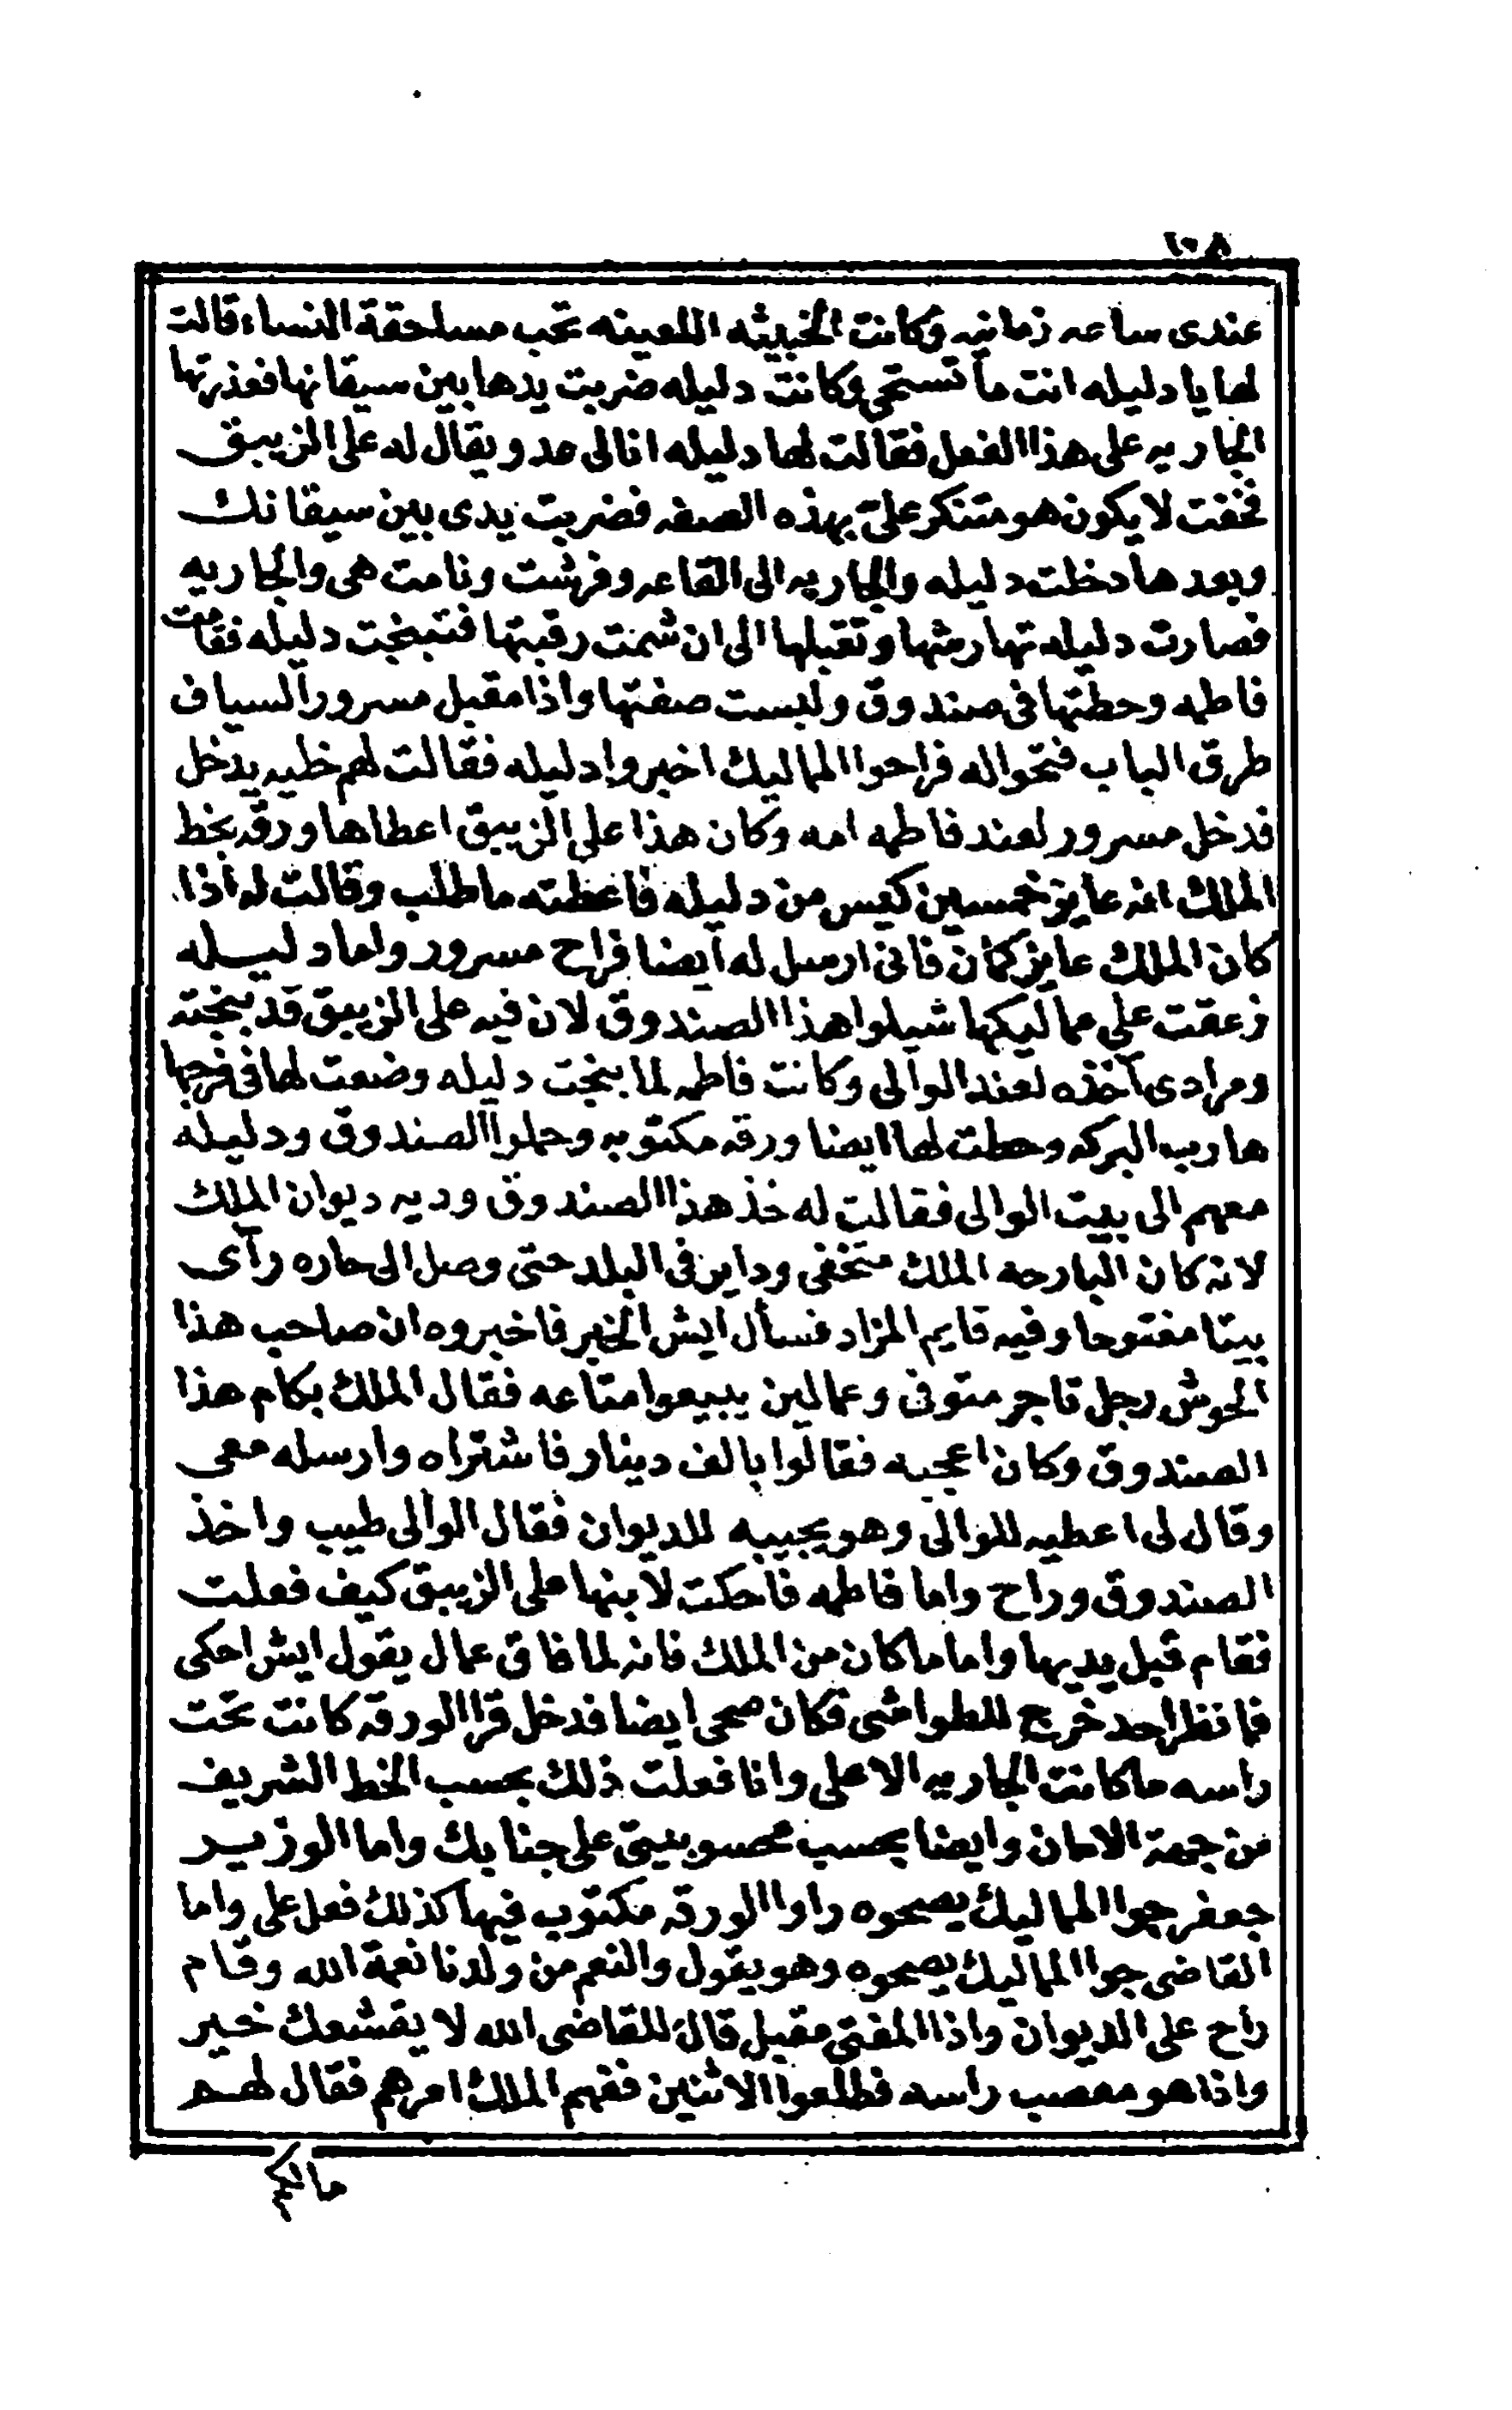 ١٠٨
عندى ساعه زمانيه وكانت الخبيثه اللعينه تحب مساحقة النساء قالت
لها يا دليله انت ما تستحى وكانت دليله ضربت يدها بين سيقانها فعذرتها
الجاريه على هذا الفعل فقالت لها دليله انا لى عدو يقال له على الزيبق
فخفت لا يكون هو متنكر على بهذه الصفه فضربت يدى بين سيقانك
وبعدها دخلت دليله والجاريه الى القاعه وفرشت ونامت هى والجاريه
فصارت دليله تهارشها وتقبلها الى ان شمت رقبتها فتبنجت دليله فقامت
فاطمه وحطتها فى صندوق ولبست صفتها واذا مقبل مسرور السياف
طرق الباب فتحوا له فراحوا المماليك اخبروا دليله فقالت لهم خليه يدخل
فدخل مسرور لعند فاطمه امه وكان هذا على الزيبق اعطاها ورقه بخط
الملك انه عايز خمسين كيس من دليله فاعطته ما طلب وقالت له اذا
كان الملك عايز كمان فانى ارسل له ايضا فراح مسرور واما دليـله
زعقت على مماليكها شيلوا هذا الصندوق لان فيه على الزيبق قد بنجته
ومرادى آخذه لعند الوالى وكانت فاطمه لما بنجت دليله وضعت لها فى فرجها
هارب البركه وحطت لها ايضا ورقه مكتوبه وحملوا الصندوق ودليله
معهم الى بيت الوالى فقالت له خذ هذا الصندوق وديه ديوان الملك
لانه كان البارحه الملك متخفى وداير فى البلد حتى وصل الى حاره رآى
بيتا مفتوحا وفيه قايم المزاد فسأل ايش الخبر فاخبروه ان صاحب هذا
الحوش رجل تاجر متوفى وعمالين يبيعوا متاعه فقال الملك بكام هذا
الصندوق وكان اعجبه فقالوا بالف دينار فاشتراه وارسله معى
وقال لى اعطيه للوالى وهو يجيبه للديوان فقال الوالى طيب واخذ
الصندوق وراح واما فاطمه فاحكت لابنها على الزيبق كيف فعلت
فقام قبل يديها واما ما كان من الملك فانه لما فاق عمال يقول ايش احكى
فما نظر احد خرج للطواشى فكان صحى ايضا فدخل قرا الورقه كانت تحت
راسه ما كانت الجاريه الا على وانا فعلت ذلك بحسب الخط الشريف
من جهة الامان وايضا بحسب محسوبيتى على جنابك واما الوزيـر
جعفر جوا المماليك يصحوه راوا الورقه مكتوب فيها كذلك فعل على واما
القاضى جوا المماليك يصحوه وهو يقول والنعم من ولدنا نعمة الله وقام
راح على الديوان واذا المفتى مقبل قال للقاضى الله لا يقشعك خير
واذا هو معصب راسه فطلعوا الاثنين ففهم الملك امرهم فقال لهـم
مالكم